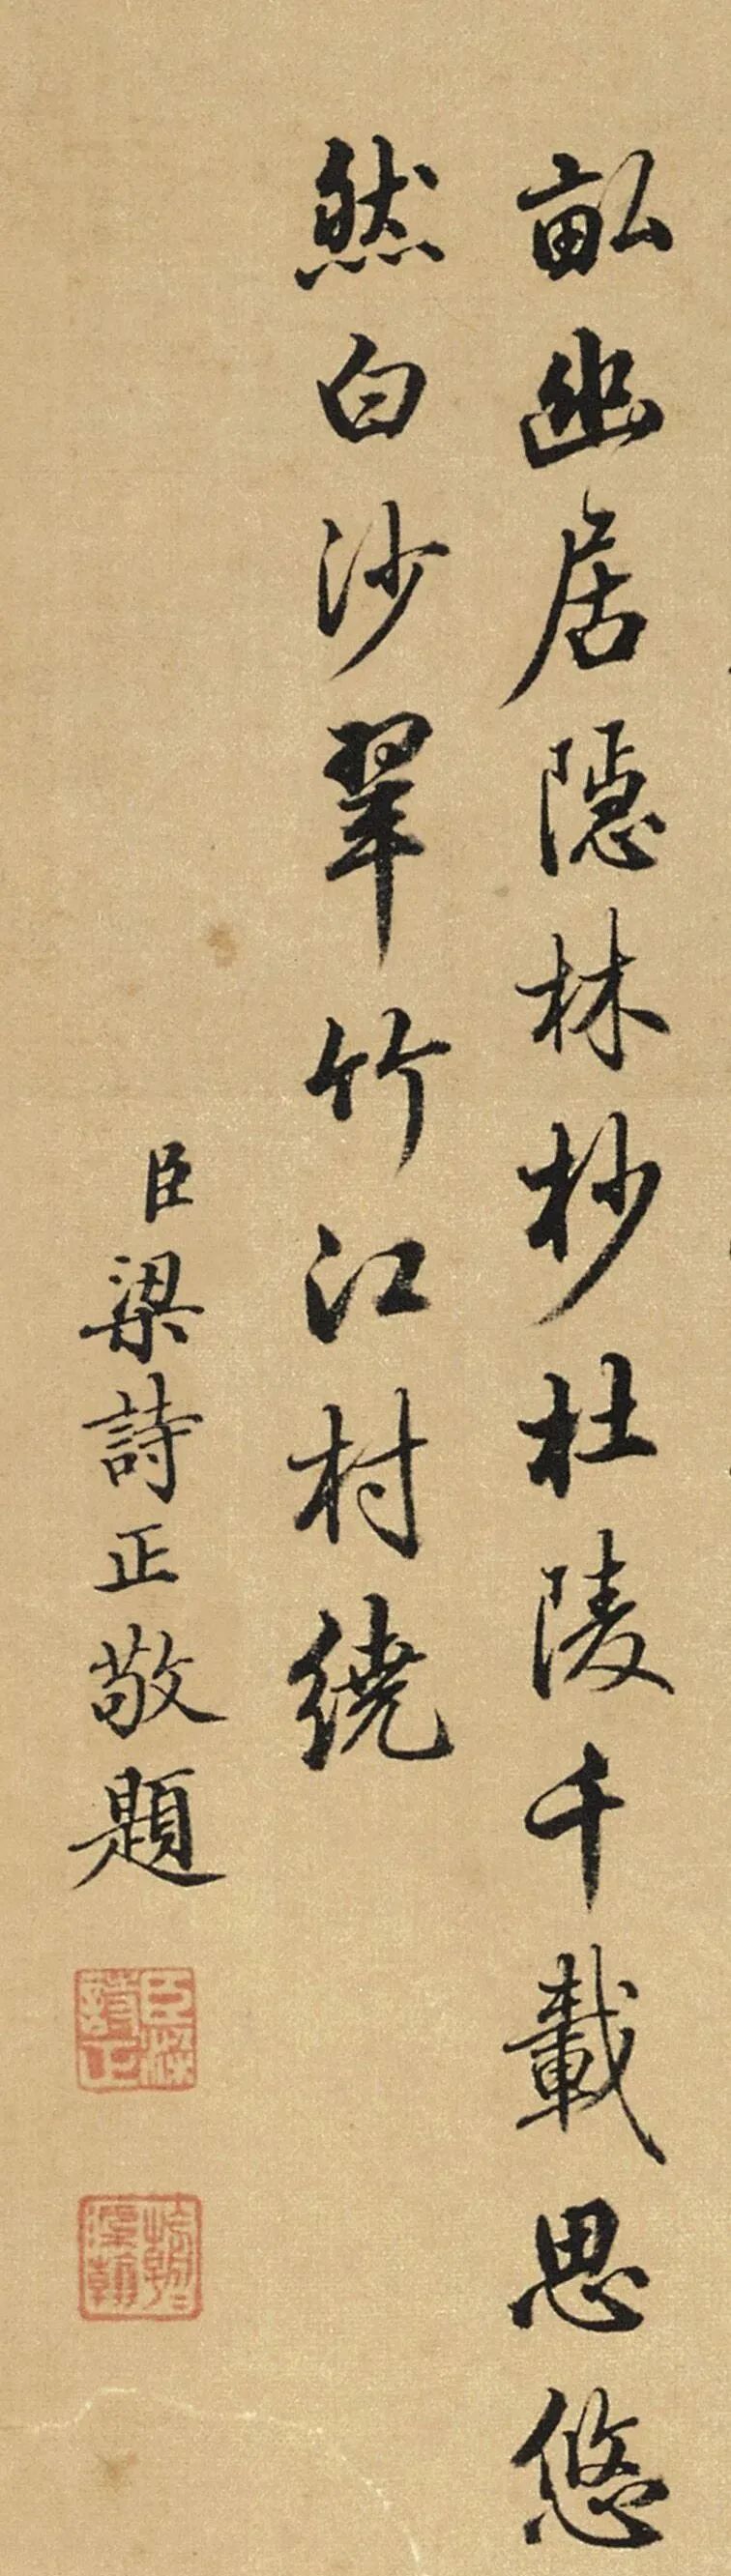 畝幽居隱林杪杜陵千載思悠
然白沙翠竹江村繞
臣梁詩正敬題
臣梁詩正